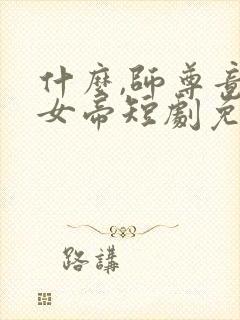 什麼,師尊竟
女帝短劇免
路講